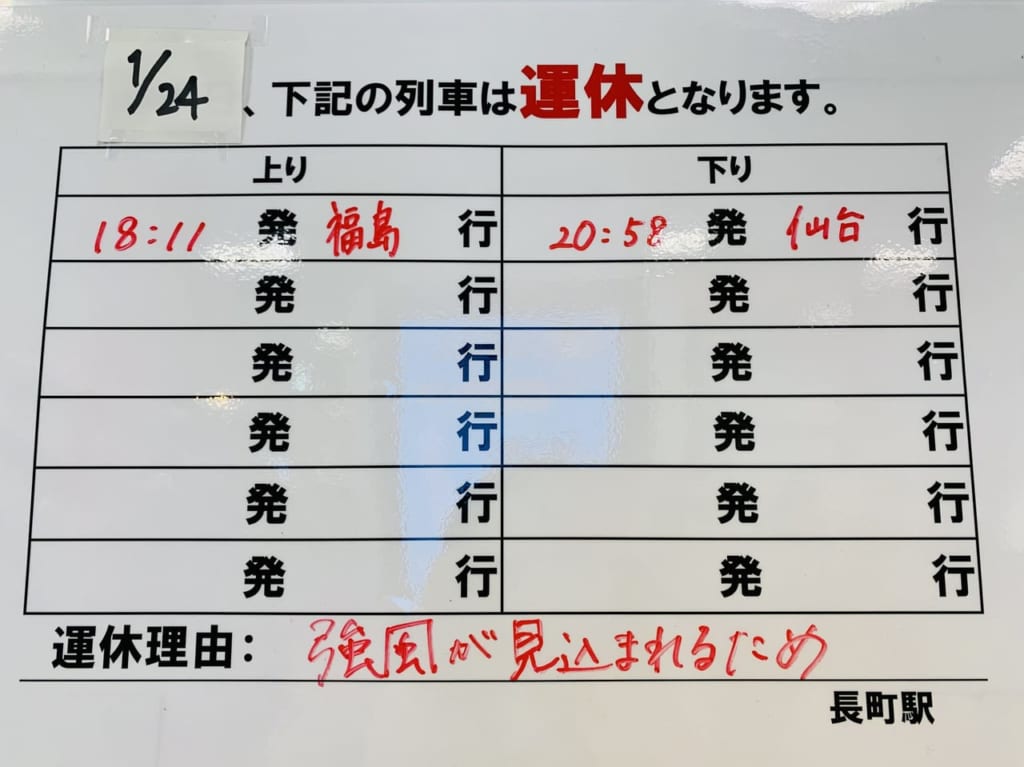 1/24、下記の列車は運休となります。
上り 下り
18:11 発 福島 行 20:58 発 仙台 行
発 行 発 行
発 行 発 行
発 行 発 行
発 行 発 行
発 行 発 行
運休理由: 強風が見込まれるため
長町駅